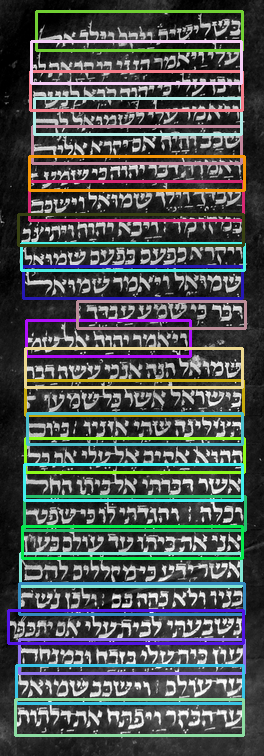 בשלישית ויקם וילך אל
עלי ויאמר הנני כי קראת לי
ויבן עלי כי יהוה קרא לנער
ויאמר עלי לשמואל לך
שכב והיה אם יקרא אליך
ואמרת דבר יהוה כי שמע
עבדך וילך שמואל וישכב
במקומו ויבא יהוה ויתיצב
ויקרא כפעם בפעם שמואל
שמואל ויאמר שמואל
דבר כי שמע עבדך
ויאמר יהוה אל שמ
שמואל הנה אנכי עשה דבר
בישראל אשר כל שמעו
תצלינה שתי אזניו ביום
ההוא אקים אל עלי את כל
אשר דברתי אל ביתו החל
וכלה והגדתי לו כי שפט
אני את ביתו עד עולם בעון
אשר ידע כי מקללים להם
בניו ולא כהה בם ולכן נשב
נשבעתי לבית עלי אם יתכפר
עון בית עלי בזבח ובמנחה
עד עולם וישכב שמואל
עד הבקר ויפתח את דלתות